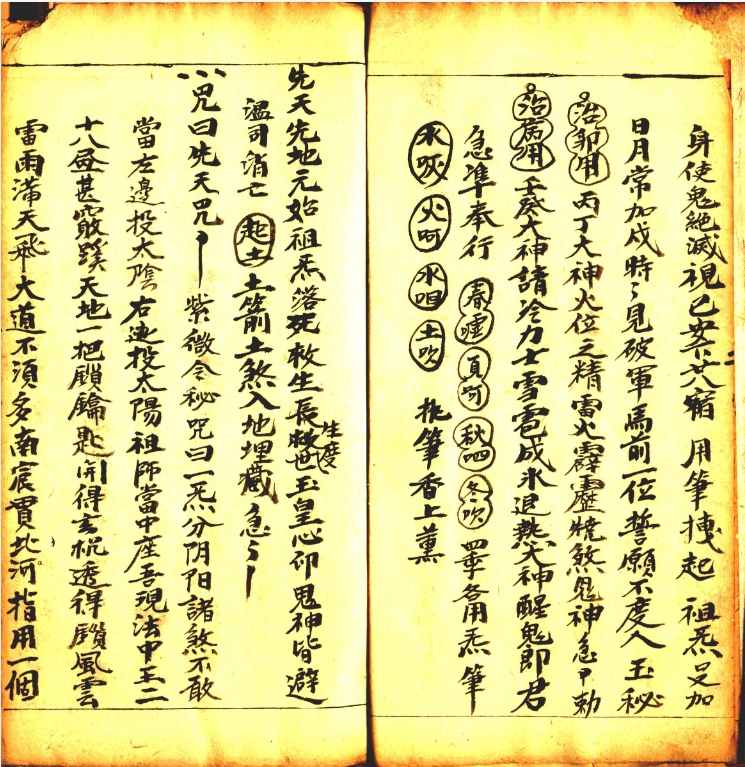 身使鬼絕滅視已安卞廿八宿 用筆拽起 祖炁又加
日月常加戌時〻見破軍馬前一位誓願不度人玉秘
治邪用 丙丁大神火位之精雷火霹靂燒煞鬼神急〻勅
治瘧用 壬癸大神請冷力士雪雹成氷退熱大神醒鬼郎君
急準奉行 春噓 夏呵 秋呬 冬吹 四季各用炁筆
永 火呵 水呬 土吹 批筆香上薰
先天先地元始祖炁落死救生長救世生度玉皇心卬鬼神皆避
瘟司消亡 起土 土箭土煞入地埋藏急〻
咒曰先天咒 紫微令秘咒曰一炁分阴阳諸煞不敢
當左邊投太陰右边投太陽祖師當中座吾現法中王二
十八 甚 蹊天地一把鎖鑰匙開得玄机透得鎖風雲
雷雨滿天飛大道不須多南宸貫北河指用一個